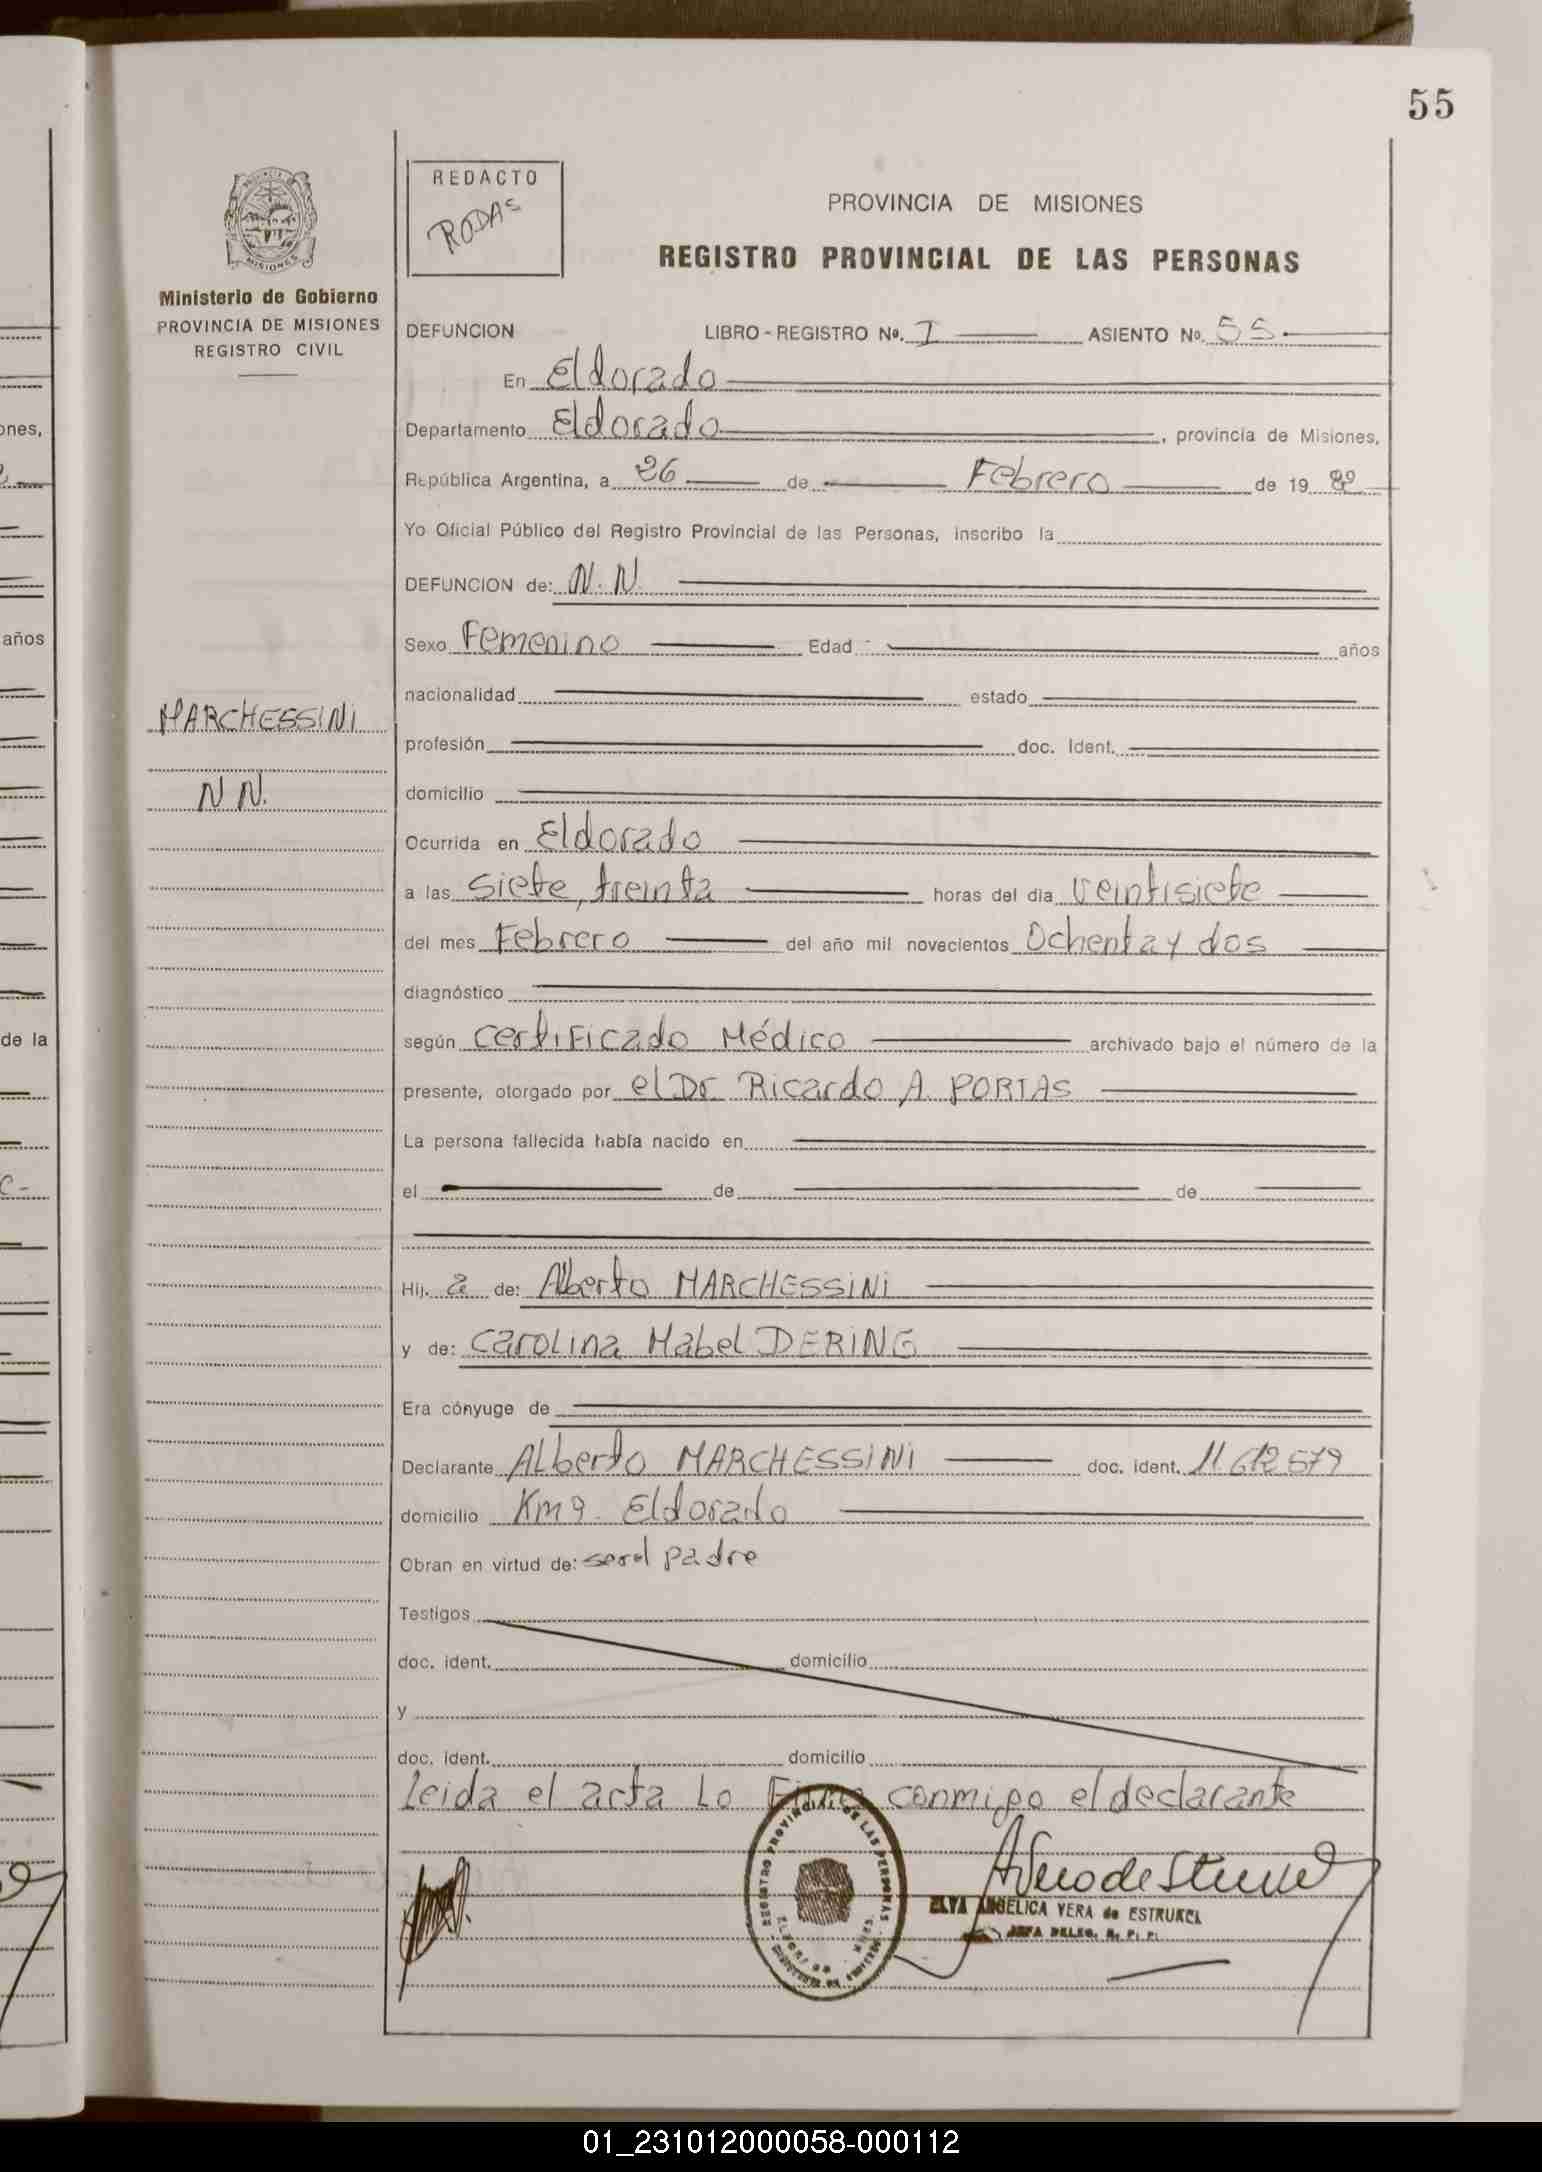 55
REDACTO
RODAS
PROVINCIA DE MISIONES
REGISTRO PROVINCIAL DE LAS PERSONAS
Ministerio de Gobierno
PROVINCIA DE MISIONES
REGISTRO CIVIL
DEFUNCION LIBRO - REGISTRO Nº. I ASIENTO Nº. 55
En Eldorado
Departamento Eldorado, provincia de Misiones,
República Argentina, a 26 de Febrero de 19 82
Yo Oficial Público del Registro Provincial de las Personas, inscribo la
DEFUNCION de: N. N.
Sexo Femenino Edad años
nacionalidad estado
MARCHESSINI
profesión doc. Ident.
N N.
domicilio
Ocurrida en Eldorado
a las siete, treinta horas del día veintisiete
del mes Febrero del año mil novecientos Ochenta y dos
diagnóstico
según certificado Médico archivado bajo el número de la
presente, otorgado por el Dr. Ricardo A. PORTAS
La persona fallecida había nacido en
el de de
Hij. a de: Alberto MARCHESSINI
y de: Carolina Mabel DERING
Era cónyuge de
Declarante Alberto MARCHESSINI doc. ident. 11.612.579
domicilio Km 9. Eldorado
Obran en virtud de: ser el padre
Testigos
doc. ident. domicilio
y
doc. ident. domicilio
Leida el acta Lo Firma conmigo el declarante
REGISTRO PROVINCIAL DE LAS PERSONAS
ELVA ANGELICA VERA de ESTRUKEL
JEFA DELEG. R. P. P.
ones,
años
de la
01_231012000058-000112